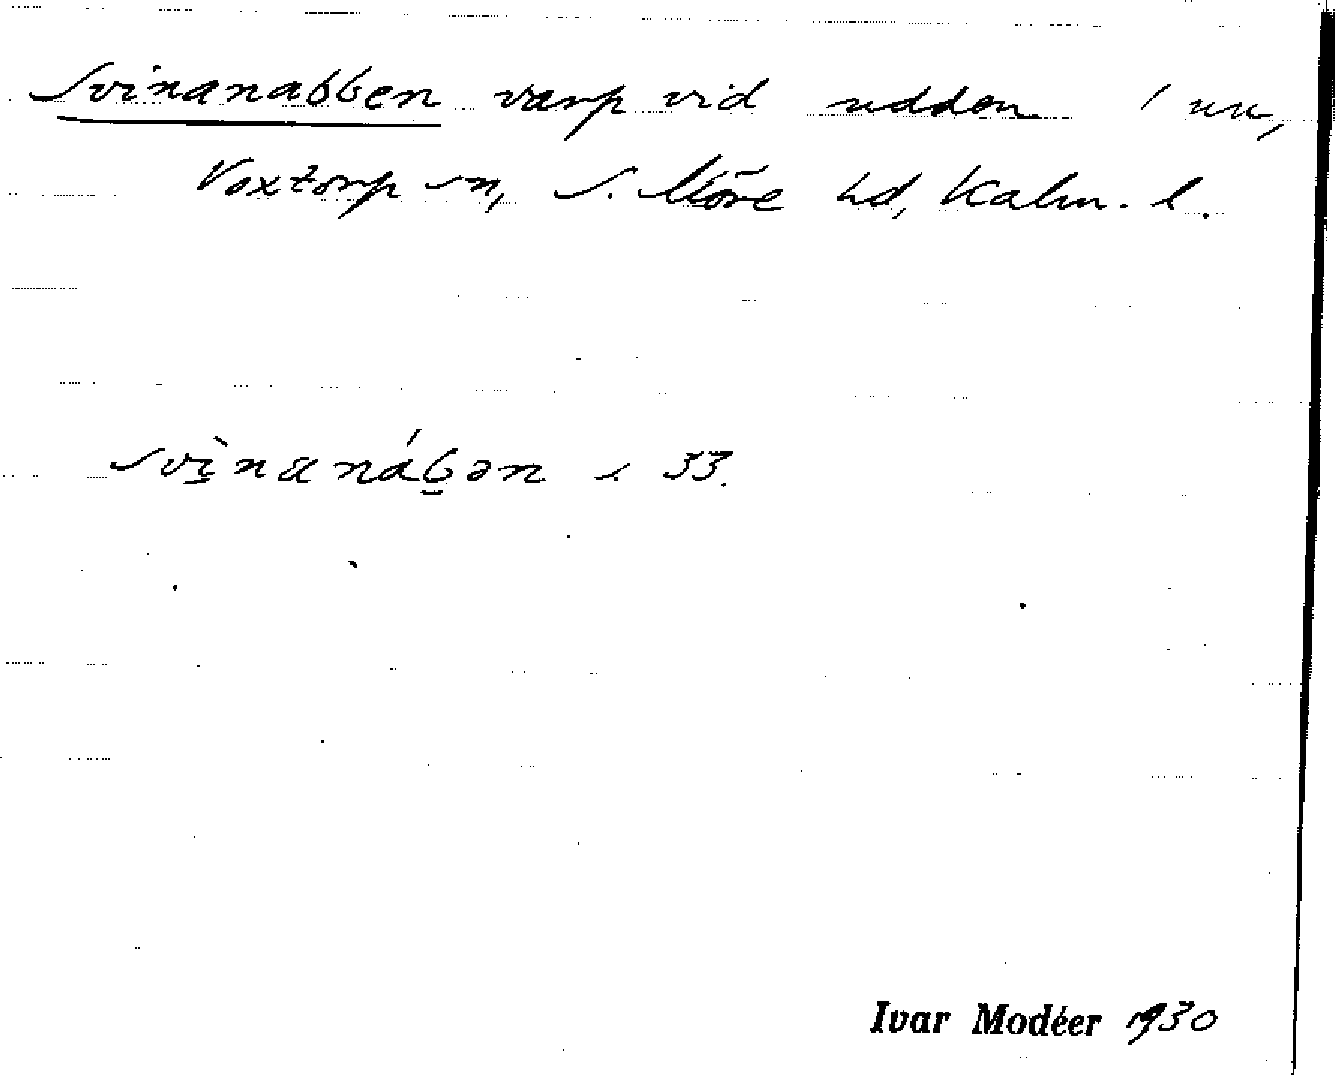 Svinanabben varp vid udden / nu,
Voxtorp sn, S. Möre hd, Kalm. l.
svìnanáben s 33.
Ivar Modéer 1930